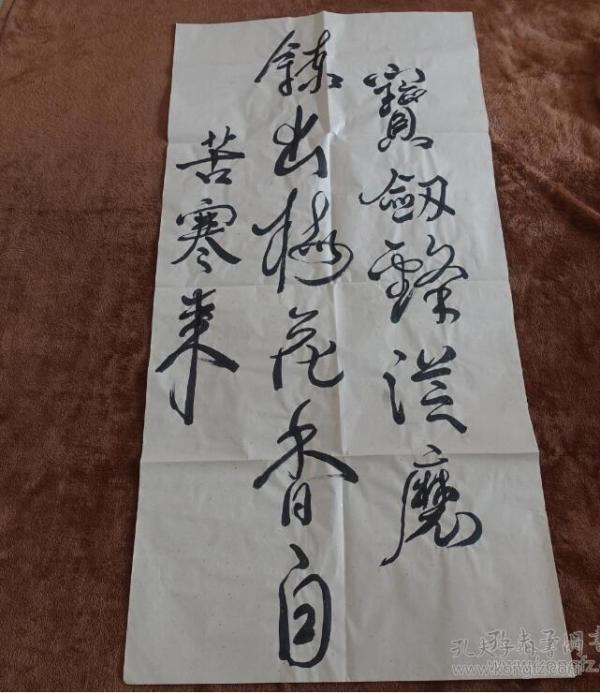 寶劔鋒從磨
鍊出梅花香自
苦寒来
孔夫子舊書網
www.kongfz.com